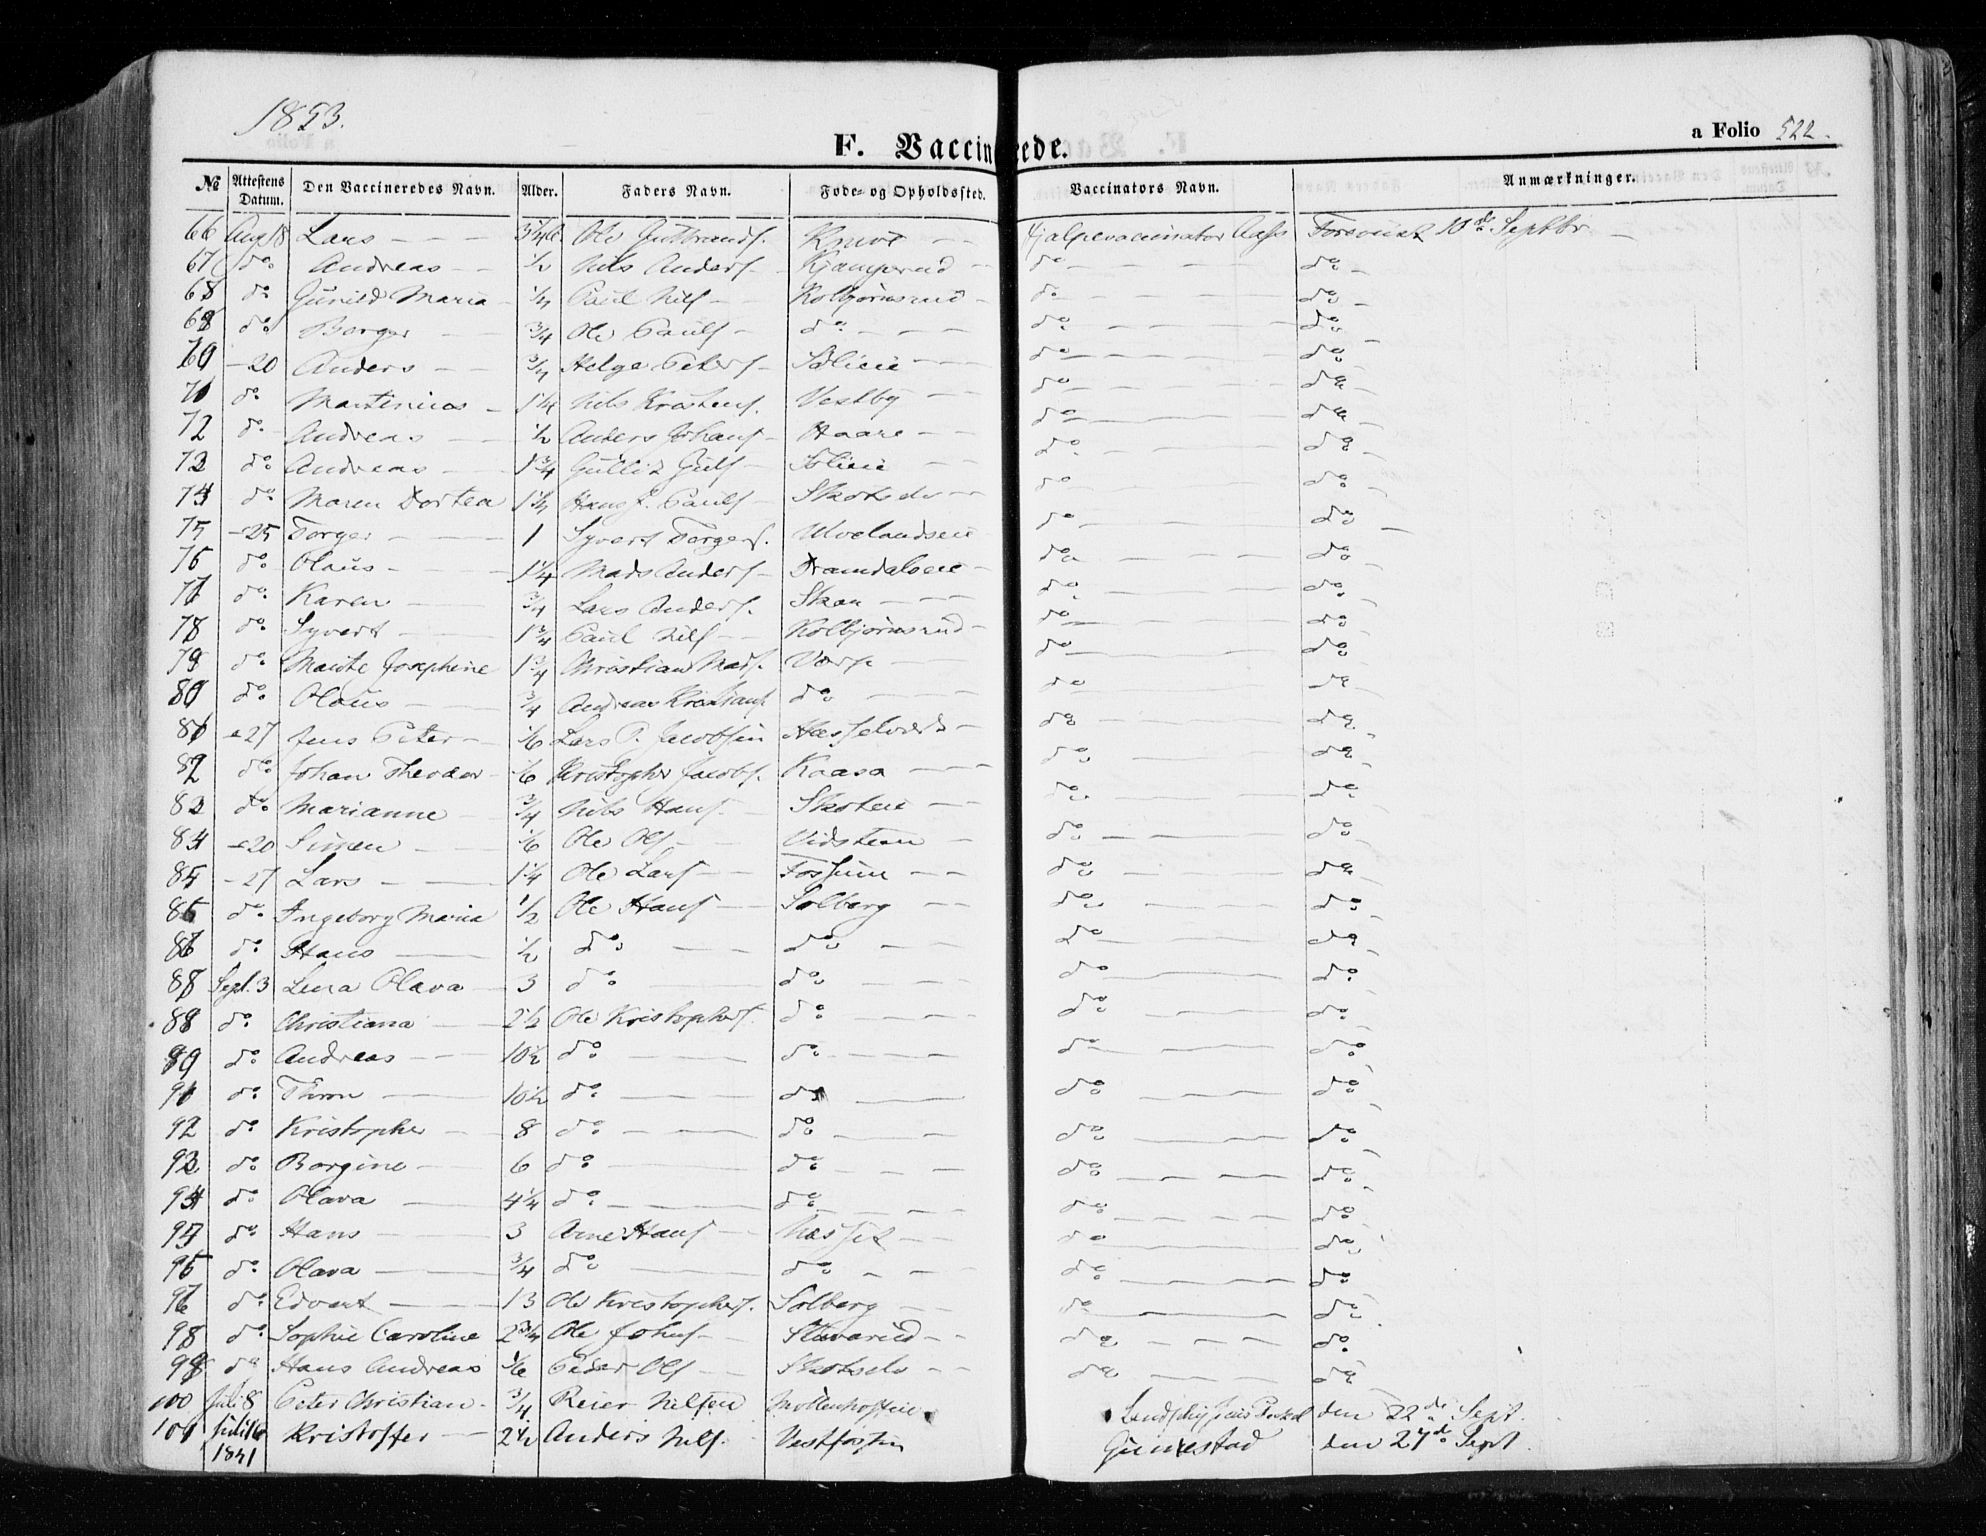 1853.
F. Vaccinerede.
a Folio 522.
No Attestens Datum. Den Vaccineredes Navn. Alder. Faders Navn. Føde- og Opholdssted. Vaccinators Navn. Anmærkninger.
66 Aug 18 Lars Ole Gulbrands. Hjælpevaccinator Aass 10de Septbr
67 do Andreas 1/2 Nils Anders. Kjamperud do do
68 do Gunild Maria Paul Nils. Kolbjørnsrud do do
69 do Borger 3/4 Ole Pauls. do do do
70 -20 Anders 3/4 Helge Peters. do do
71 do Martinius 1 1/4 Nils Vestby do do
72 do Andreas 1/2 Anders Johans. Haare do do
73 do Andreas 1 3/4 do do
74 do Maren Dortea 1 1/4 Hans P. Pauls. Skotselv do do
75 -25 Torger 1 Syvert Torgers. Ulvelandseie do do
76 do Olaus 1 1/4 Mads Anders. do do
77 do Karen 3/4 Lars Anders. do do
78 do Syvert 1 3/4 Paul Nils. Kolbjørnsrud do do
79 do Josephine 1 3/4 Christian Mads. do do
80 do Olaus 3/4 Andreas Kristians. do do do
81 -27 Jens Peter 1/6 Lars P. Jacobsen do do
82 do Johan Theodor 1/6 Kristopher Jacobs. Kaasa do do
83 do Marianne 3/4 Nils Hans. do do
84 -20 Simen 1/6 Ole Ols. Vidsteen do do
85 -27 Lars 1 1/4 Ole Lars. Fossum do do
86 do Ingeborg Maria 1/2 Ole Hans. Solberg do do
87 do Hans 1/2 do do do do
88 Sept. 3 Lina Olava 3 do do do do
89 do Christiana 2 1/2 Ole Kristophers. do do do
90 do Andreas 10 1/2 do do do do
91 do Thron 10 1/2 do do do do
92 do Kristopher 8 do do do do
93 do Borgine 6 do do do do
94 do Olava 4 1/4 do do do do
95 do Hans 3 Arne Hans. do do
96 do Olava 3/4 do do do do
97 do Edvart 13 Ole Kristophers. Solberg do do
98 do Sophie Caroline 2 3/4 Ole Johns. Stavarud do do
99 do Hans Andreas 1/6 Peder Ols. Skotselv do do
100 Juli 8 Peter Christian 3/4 Reier Nilsen den 22de Sept.
101 Juli 16 1851 Kristoffer 2 1/2 Anders Nils. Vestfossen Gunnestad den 27de Sept.